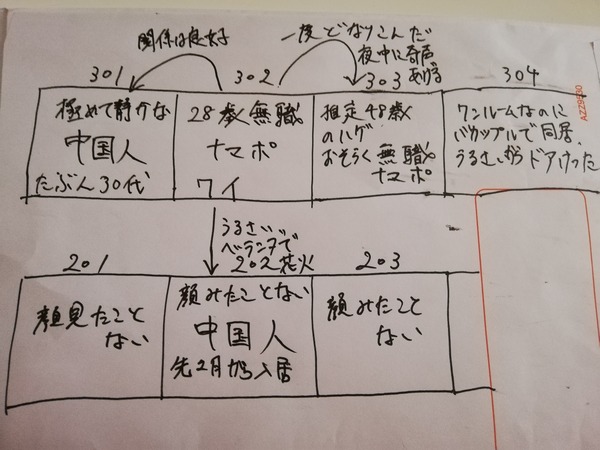 関係は良好
一度どなりこんだ
夜中に奇声
あげる
301
302
303
304
極めて静かな
中国人
たぶん30代
28歳無職
ナマポ
ワイ
推定48歳
のハゲ
おそらく無職
ナマポ
ワンルームなのに
バカップルで同居、
うるさいからドアけった
うるさい
ベランダで
花火
201
202
203
顔見たこと
ない
顔みたことない
中国人
先2月から入居
顔みたこと
ない